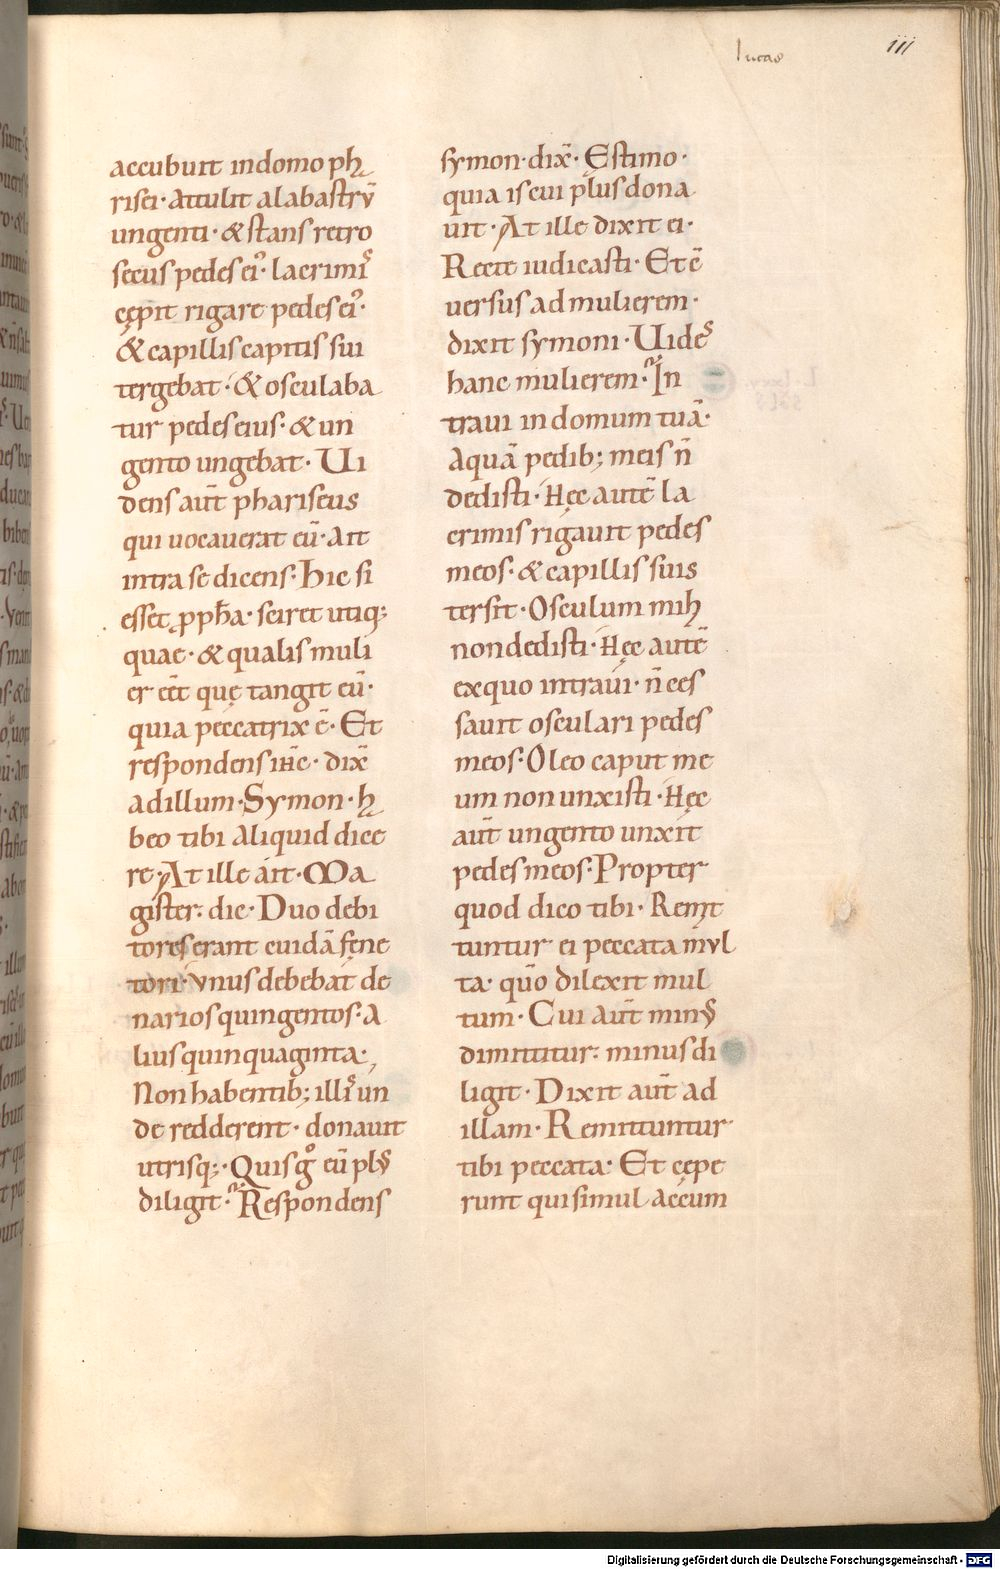 lucas
iii
accubuit in domo ph
risei · Attulit alabastrū
ungenti · & stans retro
secus pedes ei᾽ · lacrimis
cępit rigare pedes ei᾽ ·
& capillis capitis sui
tergebat · & osculaba
tur pedes eius · & un
gento ungebat · Ui
dens aut̄ phariseus
qui uocauerat eū · Ait
intra se dicens · Hic si
esset ꝓph̄a · sciret utiq;
quae · & qualis muli
er eēt quę tangit eū ·
quia peccatrix ē · Et
respondens ihc̄ · dix̄
ad illum · Symon · h
beo tibi aliquid dice
re · At ille ait · Ma
gister · dic · Duo debi
tores erant cuidā fene
tori · Vnus debebat de
narios quingentos · A
lius quinquaginta ·
Non habentib; illis un
de redderent · donauit
utrisq; · Quis g͛ eū plus
diligit · Respondens
symon · dix̄ · Estimo ·
quia is cui plus dona
uit · At ille dixit ei ·
Recte iudicasti · Et c̄
uersus ad mulierem ·
dixit symoni · Uides
hanc mulierem · In
traui in domum tuā ·
Aquā pedib; meis n̄
dedisti · Hęc autē la
crimis rigauit pedes
meos · & capillis suis
tersit · Osculum mih
non dedisti · Hęc autē
ex quo intraui · n̄ ces
sauit osculari pedes
meos · Oleo caput me
um non unxisti · Hęc
aut̄ ungento unxit
pedes meos · Propter
quod dico tibi · Remit
tuntur ei peccata mvl
ta · quō dilexit mul
tum · Cui aut̄ minus
dimittitur · minus di
ligit · Dixit aut̄ ad
illam · Remittuntur
tibi peccata · Et cępe
runt qui simul accum
Digitalisierung gefördert durch die Deutsche Forschungsgemeinschaft - DFG